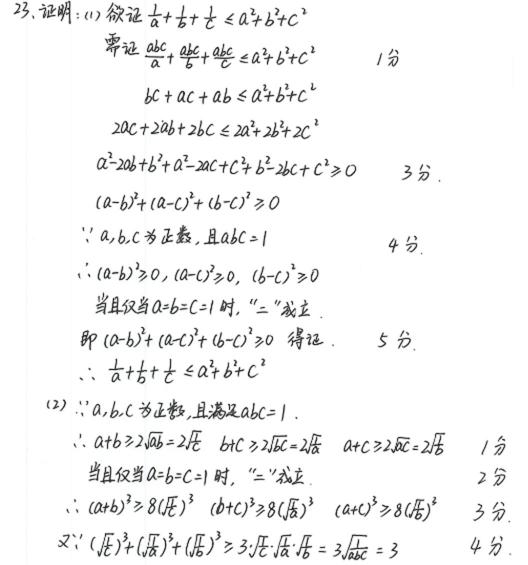 23.证明:(1) 欲证 1/a+1/b+1/c ≤a²+b²+c²
需证 abc/a+abc/b+abc/c ≤a²+b²+c² 1分
bc+ac+ab ≤a²+b²+c²
2ac+2ab+2bc ≤ 2a²+2b²+2c²
a²-2ab+b²+a²-2ac+c²+b²-2bc+c²≥0 3分.
(a-b)²+(a-c)²+(b-c)²≥0
∵ a,b,c为正数,且abc=1 4分.
∴(a-b)²≥0,(a-c)²≥0, (b-c)²≥0
当且仅当a=b=c=1时,"="成立.
即 (a-b)²+(a-c)²+(b-c)²≥0 得证. 5分.
∴ 1/a+1/b+1/c ≤a²+b²+c²
(2) ∵a,b,c为正数,且满足abc=1.
∴ a+b≥2√ab=2√(1/c) b+c≥2√bc=2√(1/a) a+c≥2√ac=2√(1/b) 1分
当且仅当a=b=c=1时,"="成立. 2分
∴ (a+b)³≥8(√(1/c))³ (b+c)³≥8(√(1/a))³ (a+c)³≥8(√(1/b))³ 3分.
又∵ (√(1/c))³+(√(1/a))³+(√(1/b))³≥3·√(1/c)·√(1/a)·√(1/b)=3√(1/abc)=3 4分.